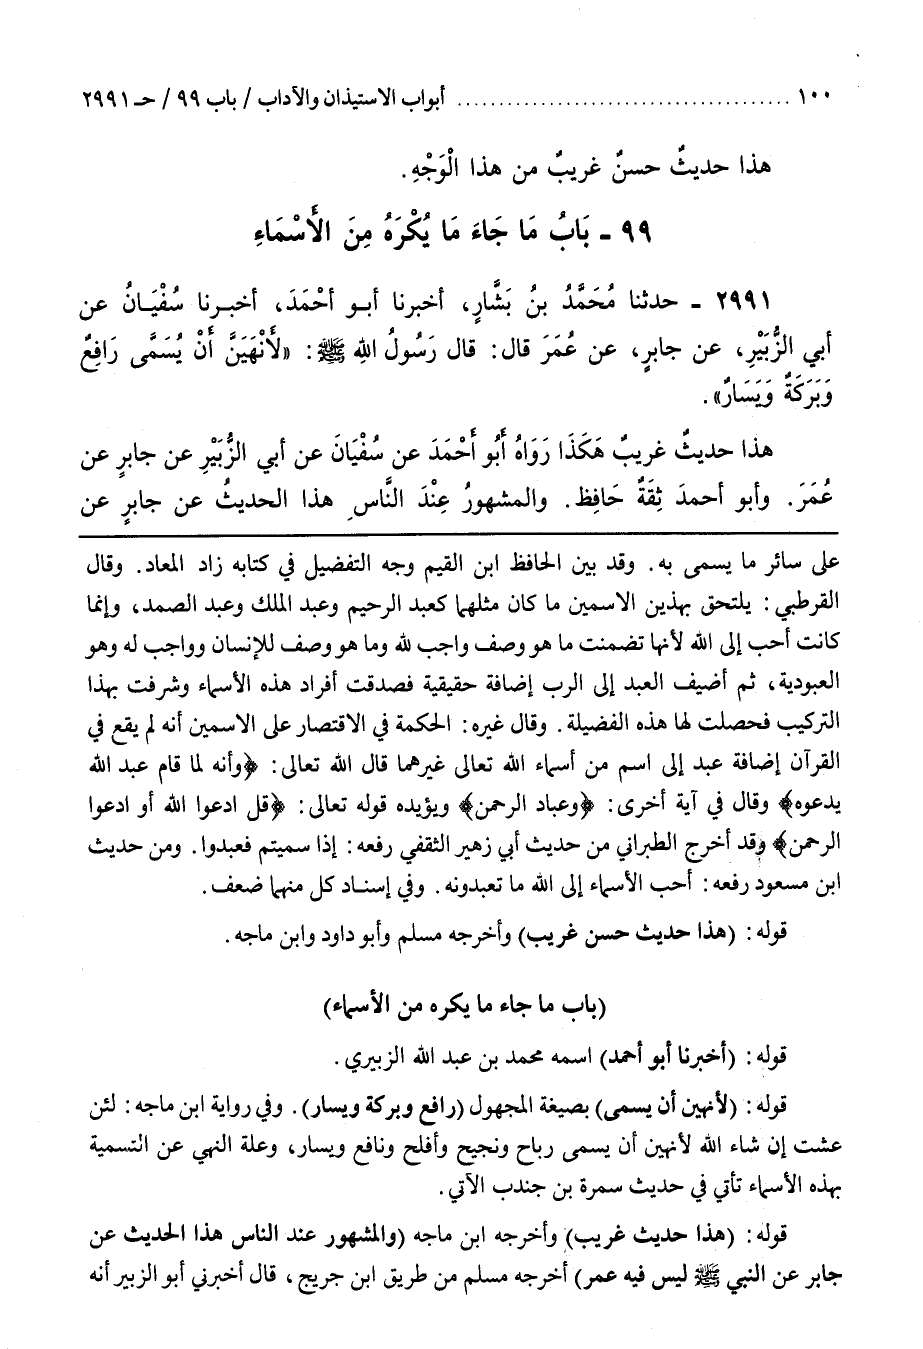 ١٠٠ ........................................ أبواب الاستيذان والآداب / باب ٩٩ / حـ ٢٩٩١
هذا حديثٌ حسنٌ غريبٌ من هذا الْوَجْهِ.
٩٩ ـ بَابُ مَا جَاءَ مَا يُكْرَهُ مِنَ الأَسْمَاءِ
٢٩٩١ ـ حدثنا مُحَمَّدُ بنُ بَشَّارٍ، أخبرنا أبـو أحْمَدَ، أخبـرنا سُفْيَـانُ عن
أبي الزُّبَيْرِ، عن جابرٍ، عن عُمَرَ قال: قال رَسُولُ اللهِ ﷺ: «لَأَنْهَيَنَّ أَنْ يُسَمَّى رَافِعٌ
وَبَرَكَةٌ وَيَسَارٌ».
هذا حديثٌ غريبٌ هَكَذَا رَوَاهُ أَبُو أَحْمَدَ عن سُفْيَانَ عن أبي الزُّبَيْرِ عن جابرٍ عن
عُمَرَ. وأبو أحمدَ ثِقَةٌ حَافِظ. والمشهورُ عِنْدَ النَّاسِ هذا الحديثُ عن جابرٍ عن
على سائر ما يسمى به. وقد بين الحافظ ابن القيم وجه التفضيل في كتابه زاد المعاد. وقال
القرطبي: يلتحق بهذين الاسمين ما كان مثلهما كعبد الرحيم وعبد الملك وعبد الصمد، وإنما
كانت أحب إلى الله لأنها تضمنت ما هو وصف واجب لله وما هو وصف للإنسان وواجب له وهو
العبودية، ثم أضيف العبد إلى الرب إضافة حقيقية فصدقت أفراد هذه الأسماء وشرفت بهذا
التركيب فحصلت لها هذه الفضيلة. وقال غيره: الحكمة في الاقتصار على الاسمين أنه لم يقع في
القرآن إضافة عبد إلى اسم من أسماء الله تعالى غيرهما قال الله تعالى: ﴿وأنه لما قام عبد الله
يدعوه﴾ وقال في آية أخرى: ﴿وعباد الرحمن﴾ ويؤيده قوله تعالى: ﴿قل ادعوا الله أو ادعوا
الرحمن﴾ وقد أخرج الطبراني من حديث أبي زهير الثقفي رفعه: إذا سميتم فعبدوا. ومن حديث
ابن مسعود رفعه: أحب الأسماء إلى الله ما تعبدونه. وفي إسناد كل منهما ضعف.
قوله: (هذا حديث حسن غريب) وأخرجه مسلم وأبو داود وابن ماجه.
(باب ما جاء ما يكره من الأسماء)
قوله: (أخبرنا أبو أحمد) اسمه محمد بن عبد الله الزبيري.
قوله: (لأنهين أن يسمى) بصيغة المجهول (رافع وبركة ويسار). وفي رواية ابن ماجه: لئن
عشت إن شاء الله لأنهين أن يسمى رباح ونجيح وأفلح ونافع ويسار، وعلة النهي عن التسمية
بهذه الأسماء تأتي في حديث سمرة بن جندب الآتي.
قوله: (هذا حديث غريب) وأخرجه ابن ماجه (والمشهور عند الناس هذا الحديث عن
جابر عن النبي ﷺ ليس فيه عمر) أخرجه مسلم من طريق ابن جريج، قال أخبرني أبو الزبير أنه